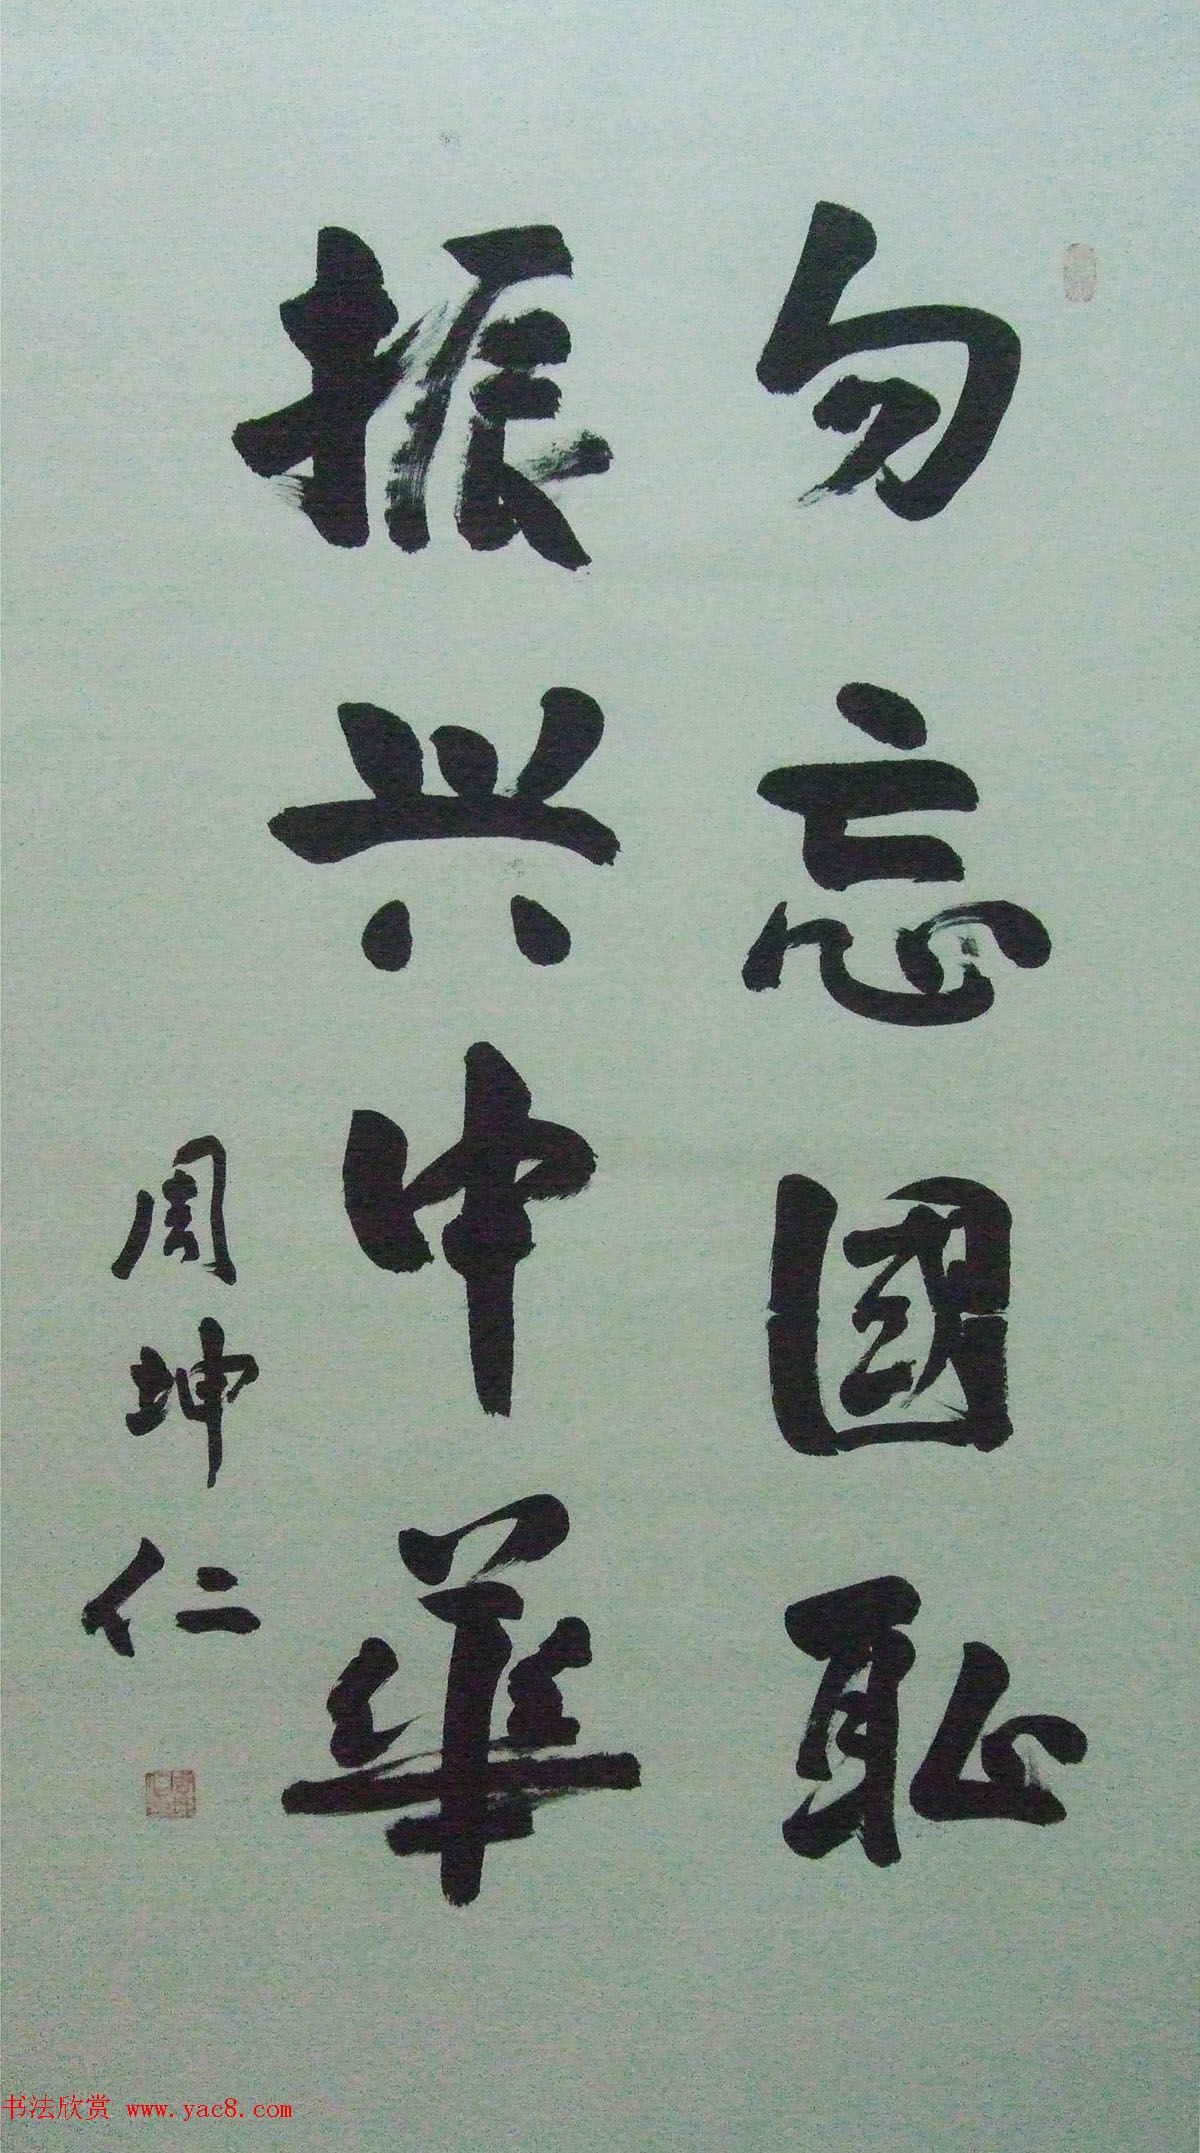 勿忘國耻
振兴中華
周坤仁
书法欣赏 www.yac8.com